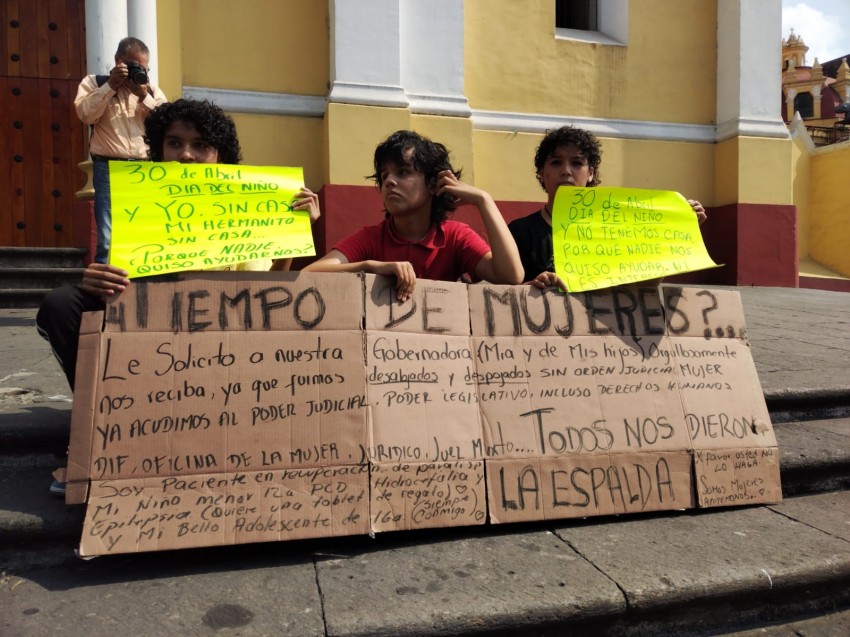 30 de Abril
DIA DEL NIÑO
Y YO. SIN CASA
MI HERMANITO
SIN CASA...
¿PORQUE NADIE
QUISO AYUDARNOS?
30 de Abril
DIA DEL NIÑO
Y NO TENEMOS CASA
POR QUE NADIE NOS
QUISO AYUDAR. NI
¿TIEMPO DE MUJERES?...
Le Solicito a nuestra Gobernadora (Mia y de Mis hijos) Orgullosamente MUJER
nos reciba, ya que fuimos desalojados y despojados SIN ORDEN JUDICIAL
YA ACUDIMOS AL PODER JUDICIAL. PODER LEGISLATIVO, INCLUSO DERECHOS HUMANOS
DIF, OFICINA DE LA MUJER, JURIDICO, JUEZ MIXTO.... TODOS NOS DIERON
LA ESPALDA
Soy Paciente en recuperación de
Mi Niño menor 12a PCD Hidrocefalia y
Epilepsia (Quiere una tablet de regalo)
Y Mi Bello Adolescente de 16a (Siempre Conmigo)
X favor usted NO
LO HAGA
Somos Mujeres